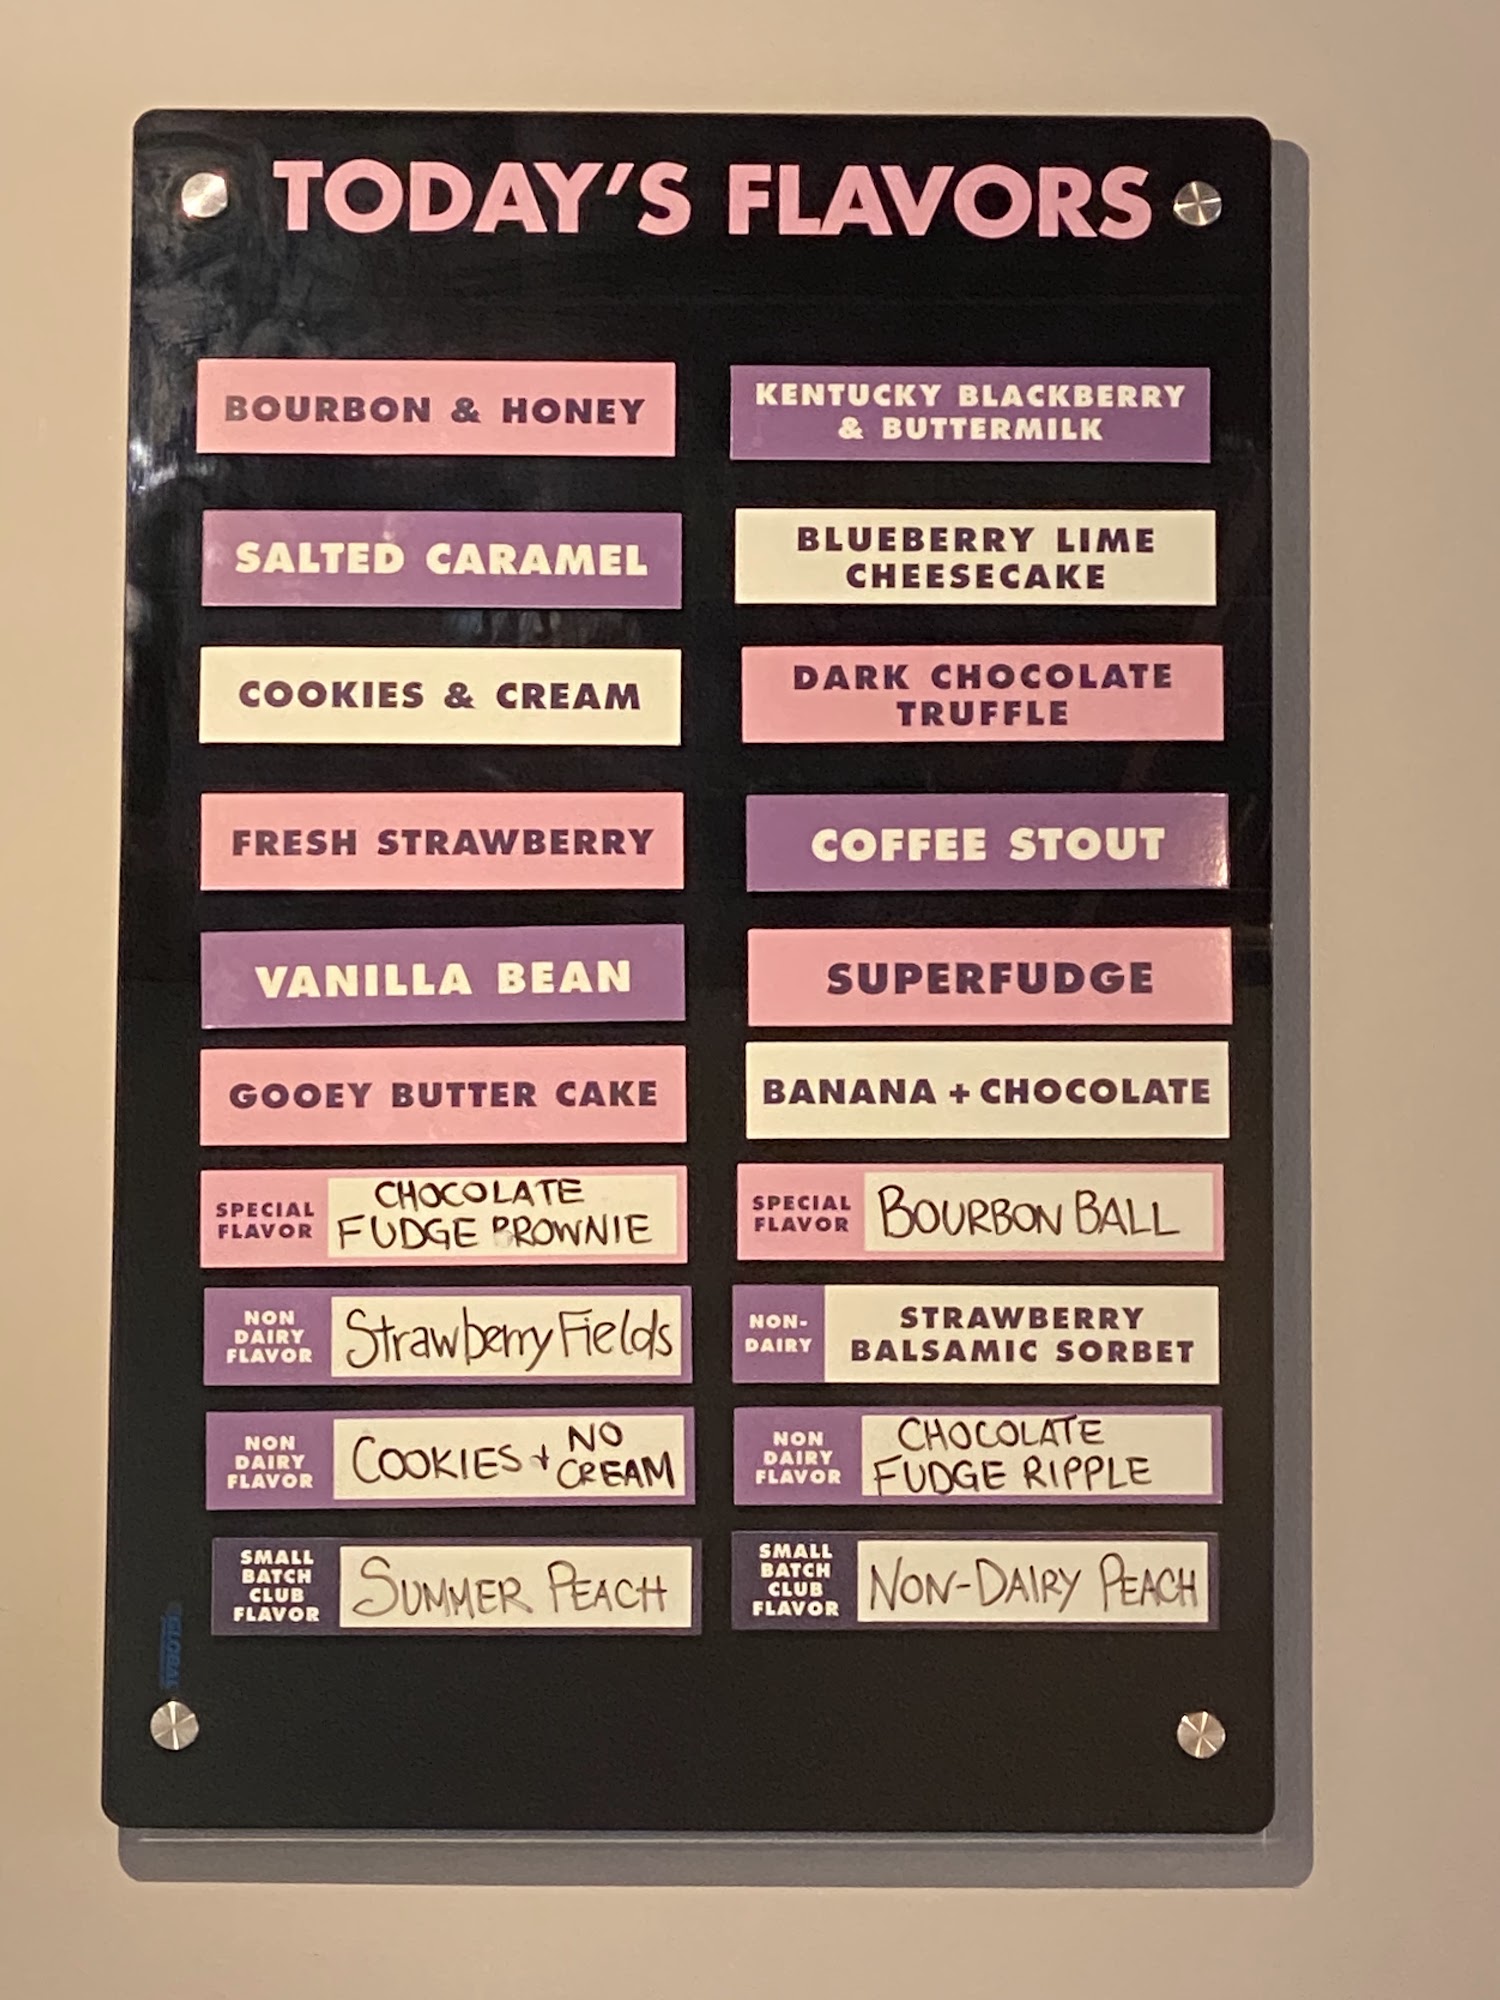 TODAY'S FLAVORS
BOURBON & HONEY
KENTUCKY BLACKBERRY
& BUTTERMILK
SALTED CARAMEL
BLUEBERRY LIME
CHEESECAKE
COOKIES & CREAM
DARK CHOCOLATE
TRUFFLE
FRESH STRAWBERRY
COFFEE STOUT
VANILLA BEAN
SUPERFUDGE
GOOEY BUTTER CAKE
BANANA + CHOCOLATE
SPECIAL
FLAVOR
CHOCOLATE
FUDGE BROWNIE
SPECIAL
FLAVOR
BOURBON BALL
NON
DAIRY
FLAVOR
Strawberry Fields
NON-
DAIRY
STRAWBERRY
BALSAMIC SORBET
NON
DAIRY
FLAVOR
COOKIES + NO
CREAM
NON
DAIRY
FLAVOR
CHOCOLATE
FUDGE RIPPLE
SMALL
BATCH
CLUB
FLAVOR
SUMMER PEACH
SMALL
BATCH
CLUB
FLAVOR
NON-DAIRY PEACH
GLOBAL